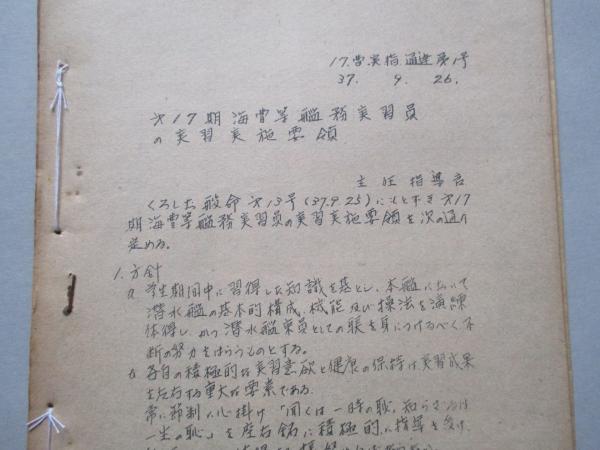 17.曹実指通達第1号
37. 9. 26.
才17期海曹等艦務実習員
の実習実施要領
主任指導官
くろしお般命才13号(37.9.25)にもとずき才17
期海曹等艦務実習員の実習実施要領を次の通り
定める。
1.方針
a 学生期間中に習得した知識を基とし、本艦において
潜水艦の基本的構成、機能及び操法を演練
体得し、かつ潜水艦乗員としての躾を身につけるべく不
断の努力をはらうものとする。
b 各自の積極的な実習意欲と健康の保持は実習成果
を左右する重大な要素である。
常に節制に心掛け「聞くは一時の恥、知らざるは
一生の恥」を座右銘に積極的に指導を受け、